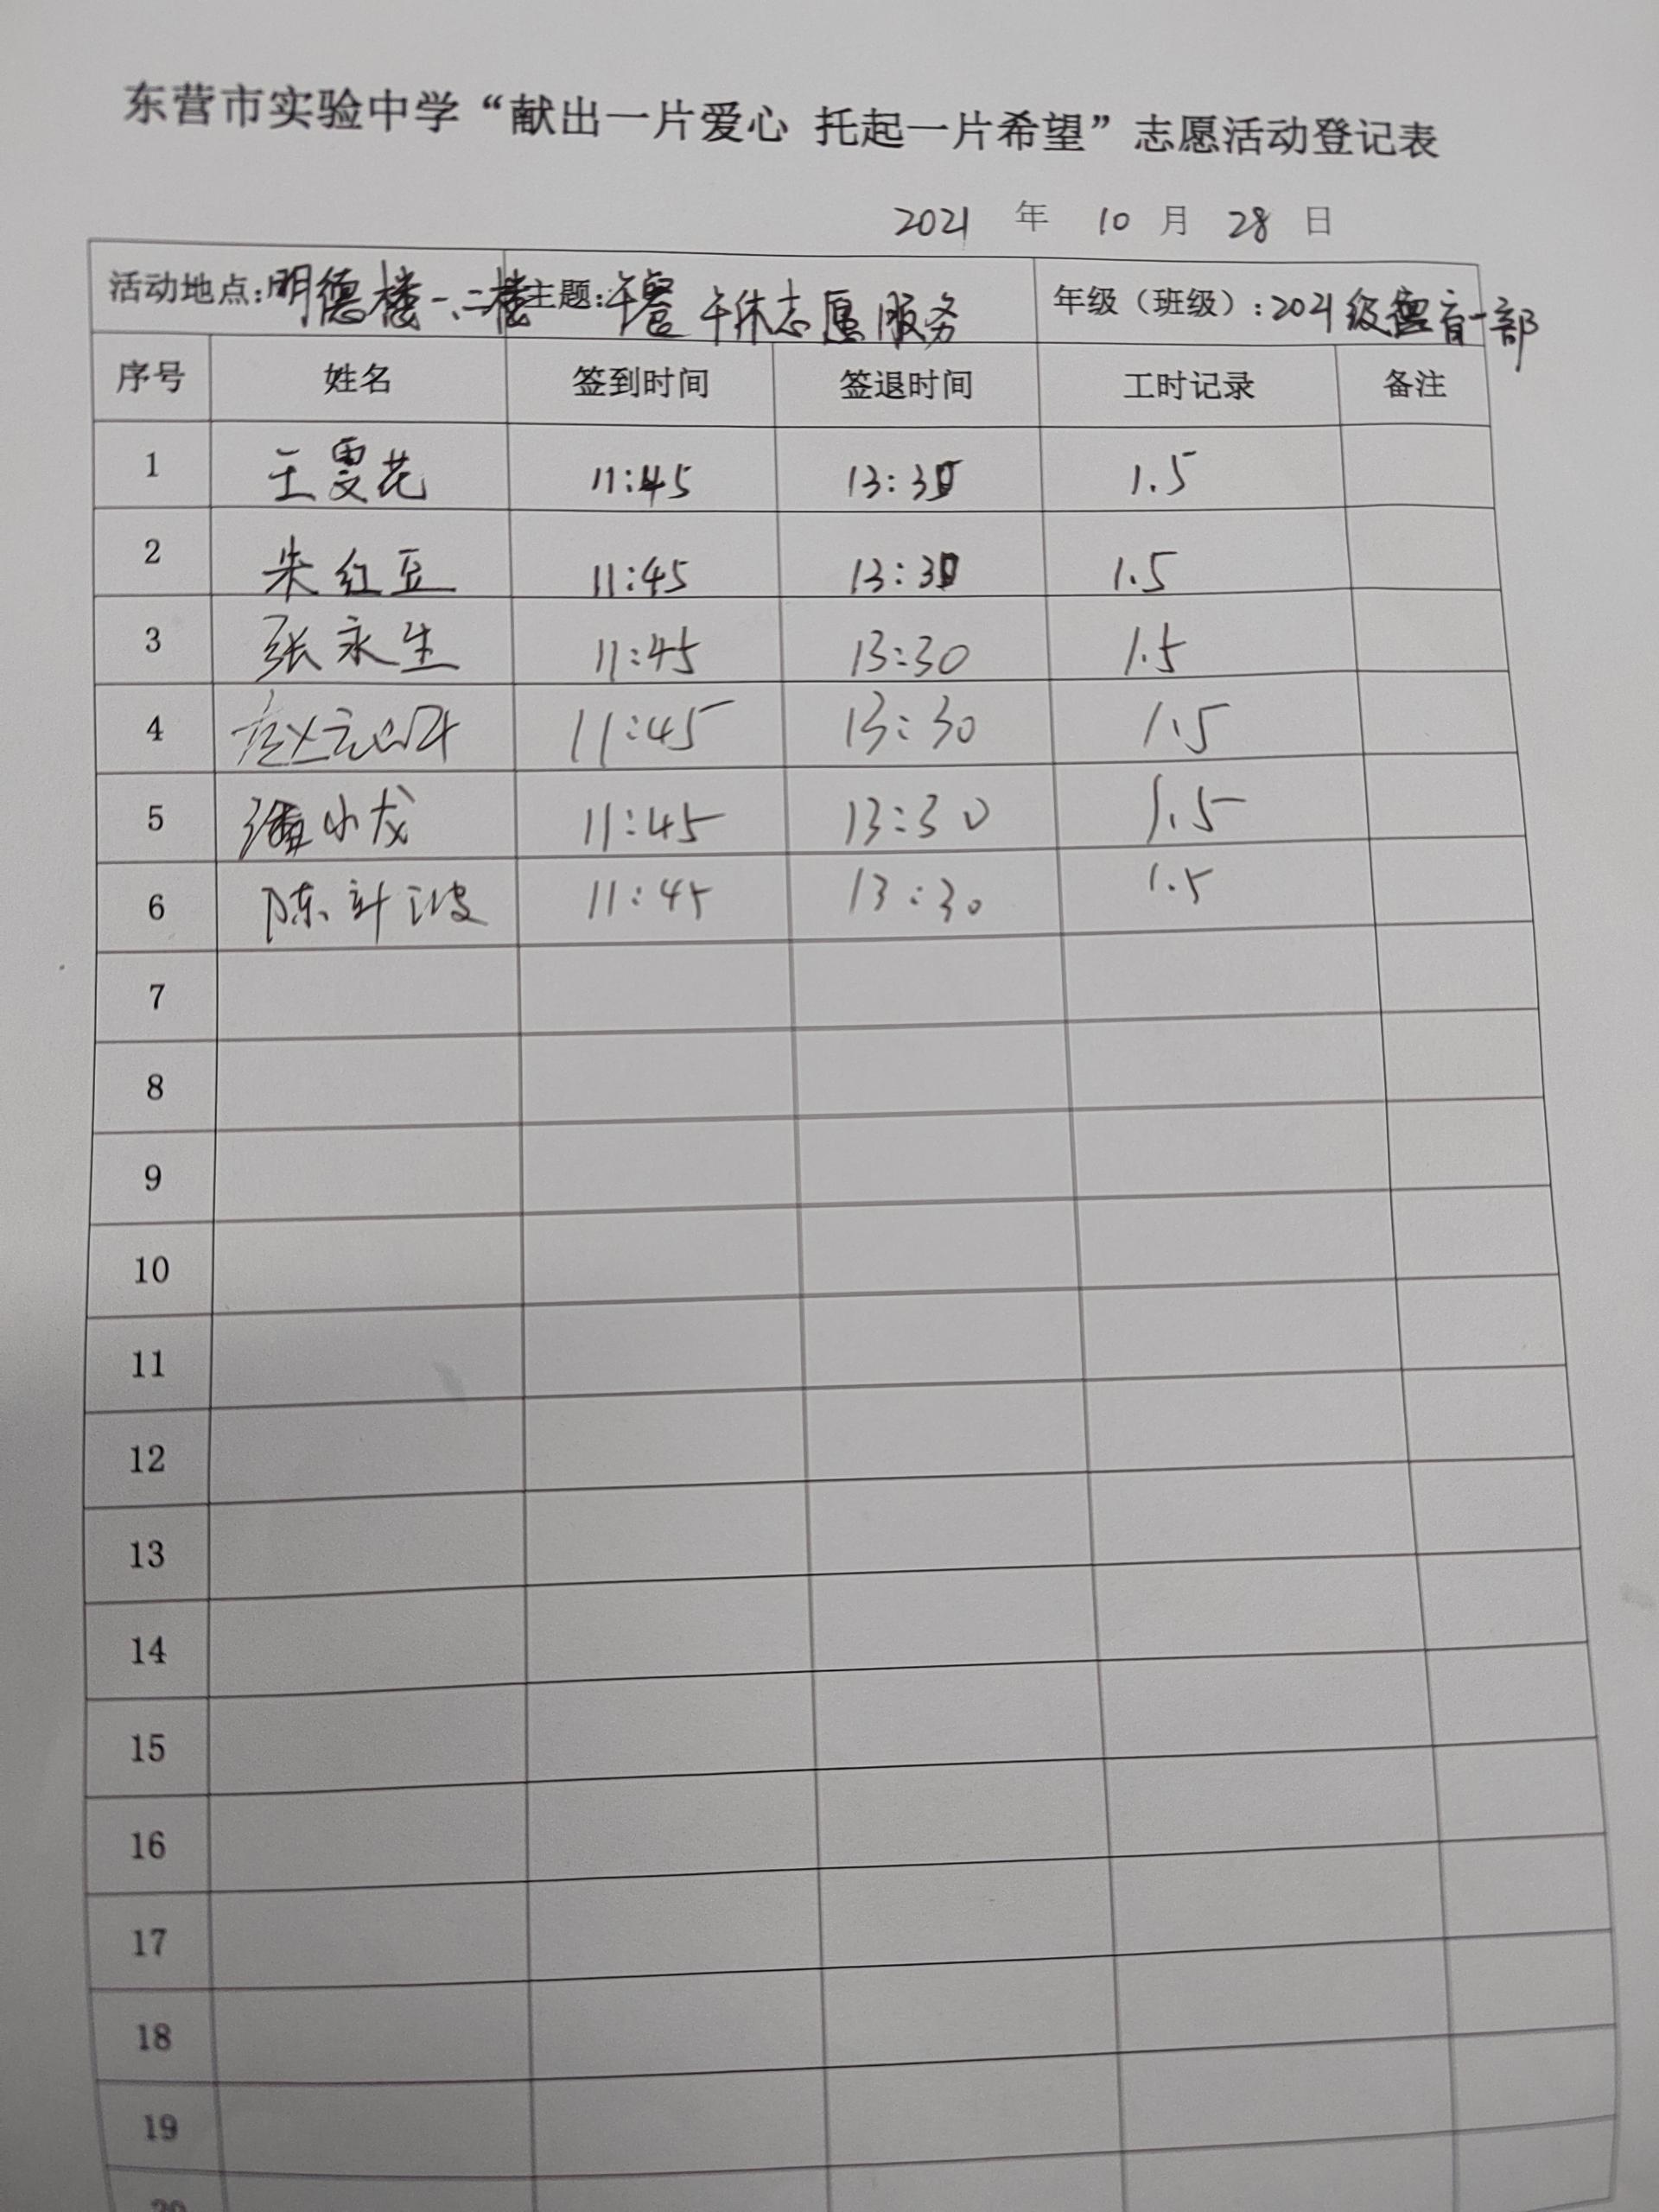 东营市实验中学“献出一片爱心 托起一片希望”志愿活动登记表
2021 年 10 月 28 日
活动地点:明德楼一、二楼 主题:午餐午休志愿服务 年级（班级）:2021级 育一部
序号 姓名 签到时间 签退时间 工时记录 备注
1 王雯花 11:45 13:30 1.5
2 朱红豆 11:45 13:30 1.5
3 张永生 11:45 13:30 1.5
4 赵 11:45 13:30 1.5
5 潘小龙 11:45 13:30 1.5
6 陈 波 11:45 13:30 1.5
7
8
9
10
11
12
13
14
15
16
17
18
19
20